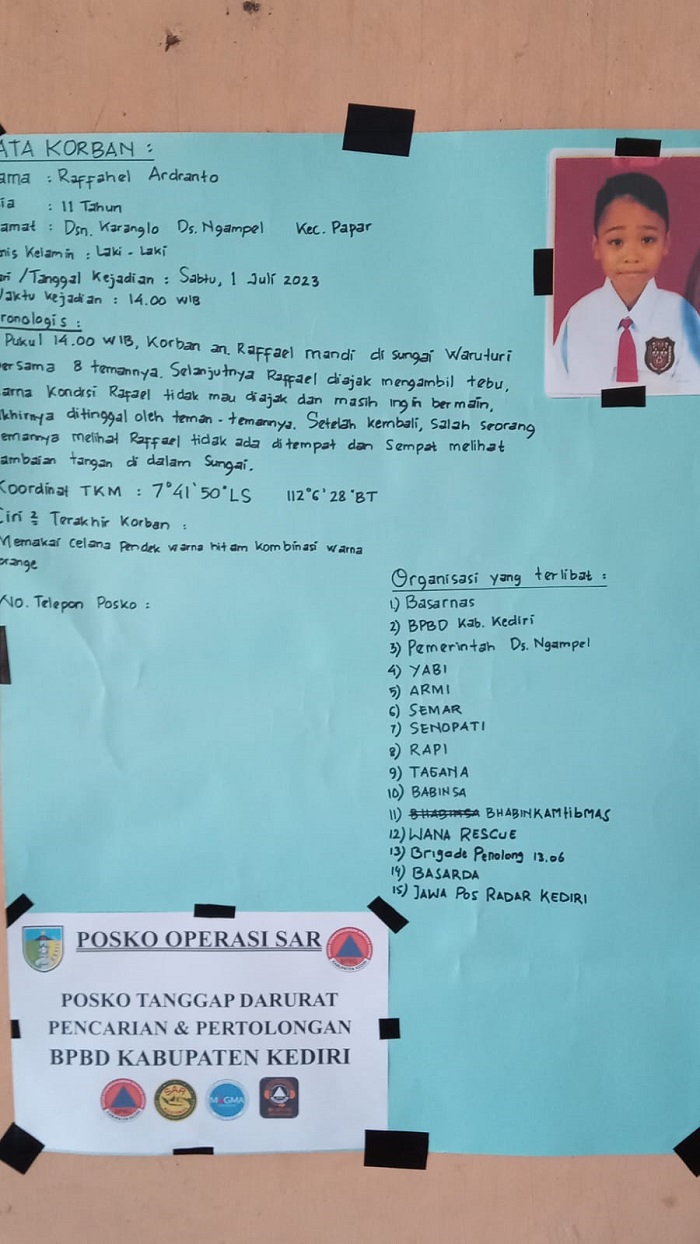 ATA KORBAN :
ama : Raffahel Ardranto
ia : 11 Tahun
amat : Dsn. Karanglo Ds. Ngampel Kec. Papar
nis Kelamin : Laki - Laki
ari /Tanggal Kejadian : Sabtu, 1 Juli 2023
Waktu kejadian : 14.00 WIB
ronologis :
Pukul 14.00 WIB, Korban an. Raffael mandi di sungai Waruturi
ersama 8 temannya. Selanjutnya Raffael diajak mengambil tebu,
arna Kondisi Rafael tidak mau diajak dan masih ingin bermain,
khirnya ditinggal oleh teman - temannya. Setelah kembali, salah seorang
emannya melihat Raffael tidak ada ditempat dan Sempat melihat
ambaian tangan di dalam Sungai.
Koordinat TKM : 7°41'50"LS 112°6'28"BT
Ciri 2 Terakhir Korban :
Memakai celana pendek warna hitam kombinasi warna
orange
No. Telepon Posko :
Organisasi yang terlibat :
1) Basarnas
2) BPBD Kab. Kediri
3) Pemerintah Ds. Ngampel
4) YABI
5) ARMI
6) SEMAR
7) SENOPATI
8) RAPI
9) TAGANA
10) BABINSA
11) BHABINSA BHABINKAMtibMAS
12) WANA RESCUE
13) Brigade Penolong 13.06
14) BASARDA
15) JAWA POS RADAR KEDIRI
POSKO OPERASI SAR
POSKO TANGGAP DARURAT
PENCARIAN & PERTOLONGAN
BPBD KABUPATEN KEDIRI